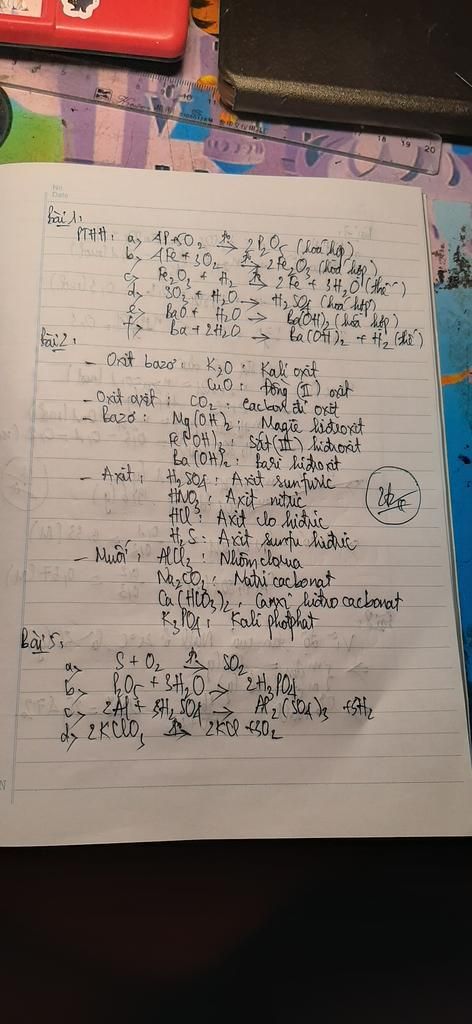 No.
Date
Bài 1:
PTHH: a, 4P+5O₂ →(t°) 2P₂O₅ (hoá hợp)
b, 4Fe + 3O₂ →(t°) 2Fe₂O₃ (hoá hợp)
c, Fe₂O₃ + H₂ →(t°) 2Fe + 3H₂O (thế)
d, SO₃ + H₂O → H₂SO₄ (hoá hợp)
e, BaO + H₂O → Ba(OH)₂ (hoá hợp)
f, Ba + 2H₂O → Ba(OH)₂ + H₂ (thế)
Bài 2:
- Oxit bazơ: K₂O: Kali oxit
CuO: Đồng (II) oxit
- Oxit axit: CO₂: Cacbon đi oxit
- Bazơ: Mg(OH)₂: Magie hiđroxit
Fe(OH)₂: Sắt (III) hiđroxit
Ba(OH)₂: Bari hiđroxit
- Axit: H₂SO₄: Axit sunfuric
HNO₃: Axit nitric
HCl: Axit clo hiđric
H₂S: Axit sunfu hiđric
- Muối: AlCl₃: Nhôm clorua
Na₂CO₃: Natri cacbonat
Ca(HCO₃)₂: Canxi hiđro cacbonat
K₃PO₄: Kali photphat
Bài 5:
a, S + O₂ →(t°) SO₂
b, P₂O₅ + 3H₂O → 2H₃PO₄
c, 2Al + 3H₂SO₄ → Al₂(SO₄)₃ + 3H₂
d, 2KClO₃ →(t°) 2KCl + 3O₂